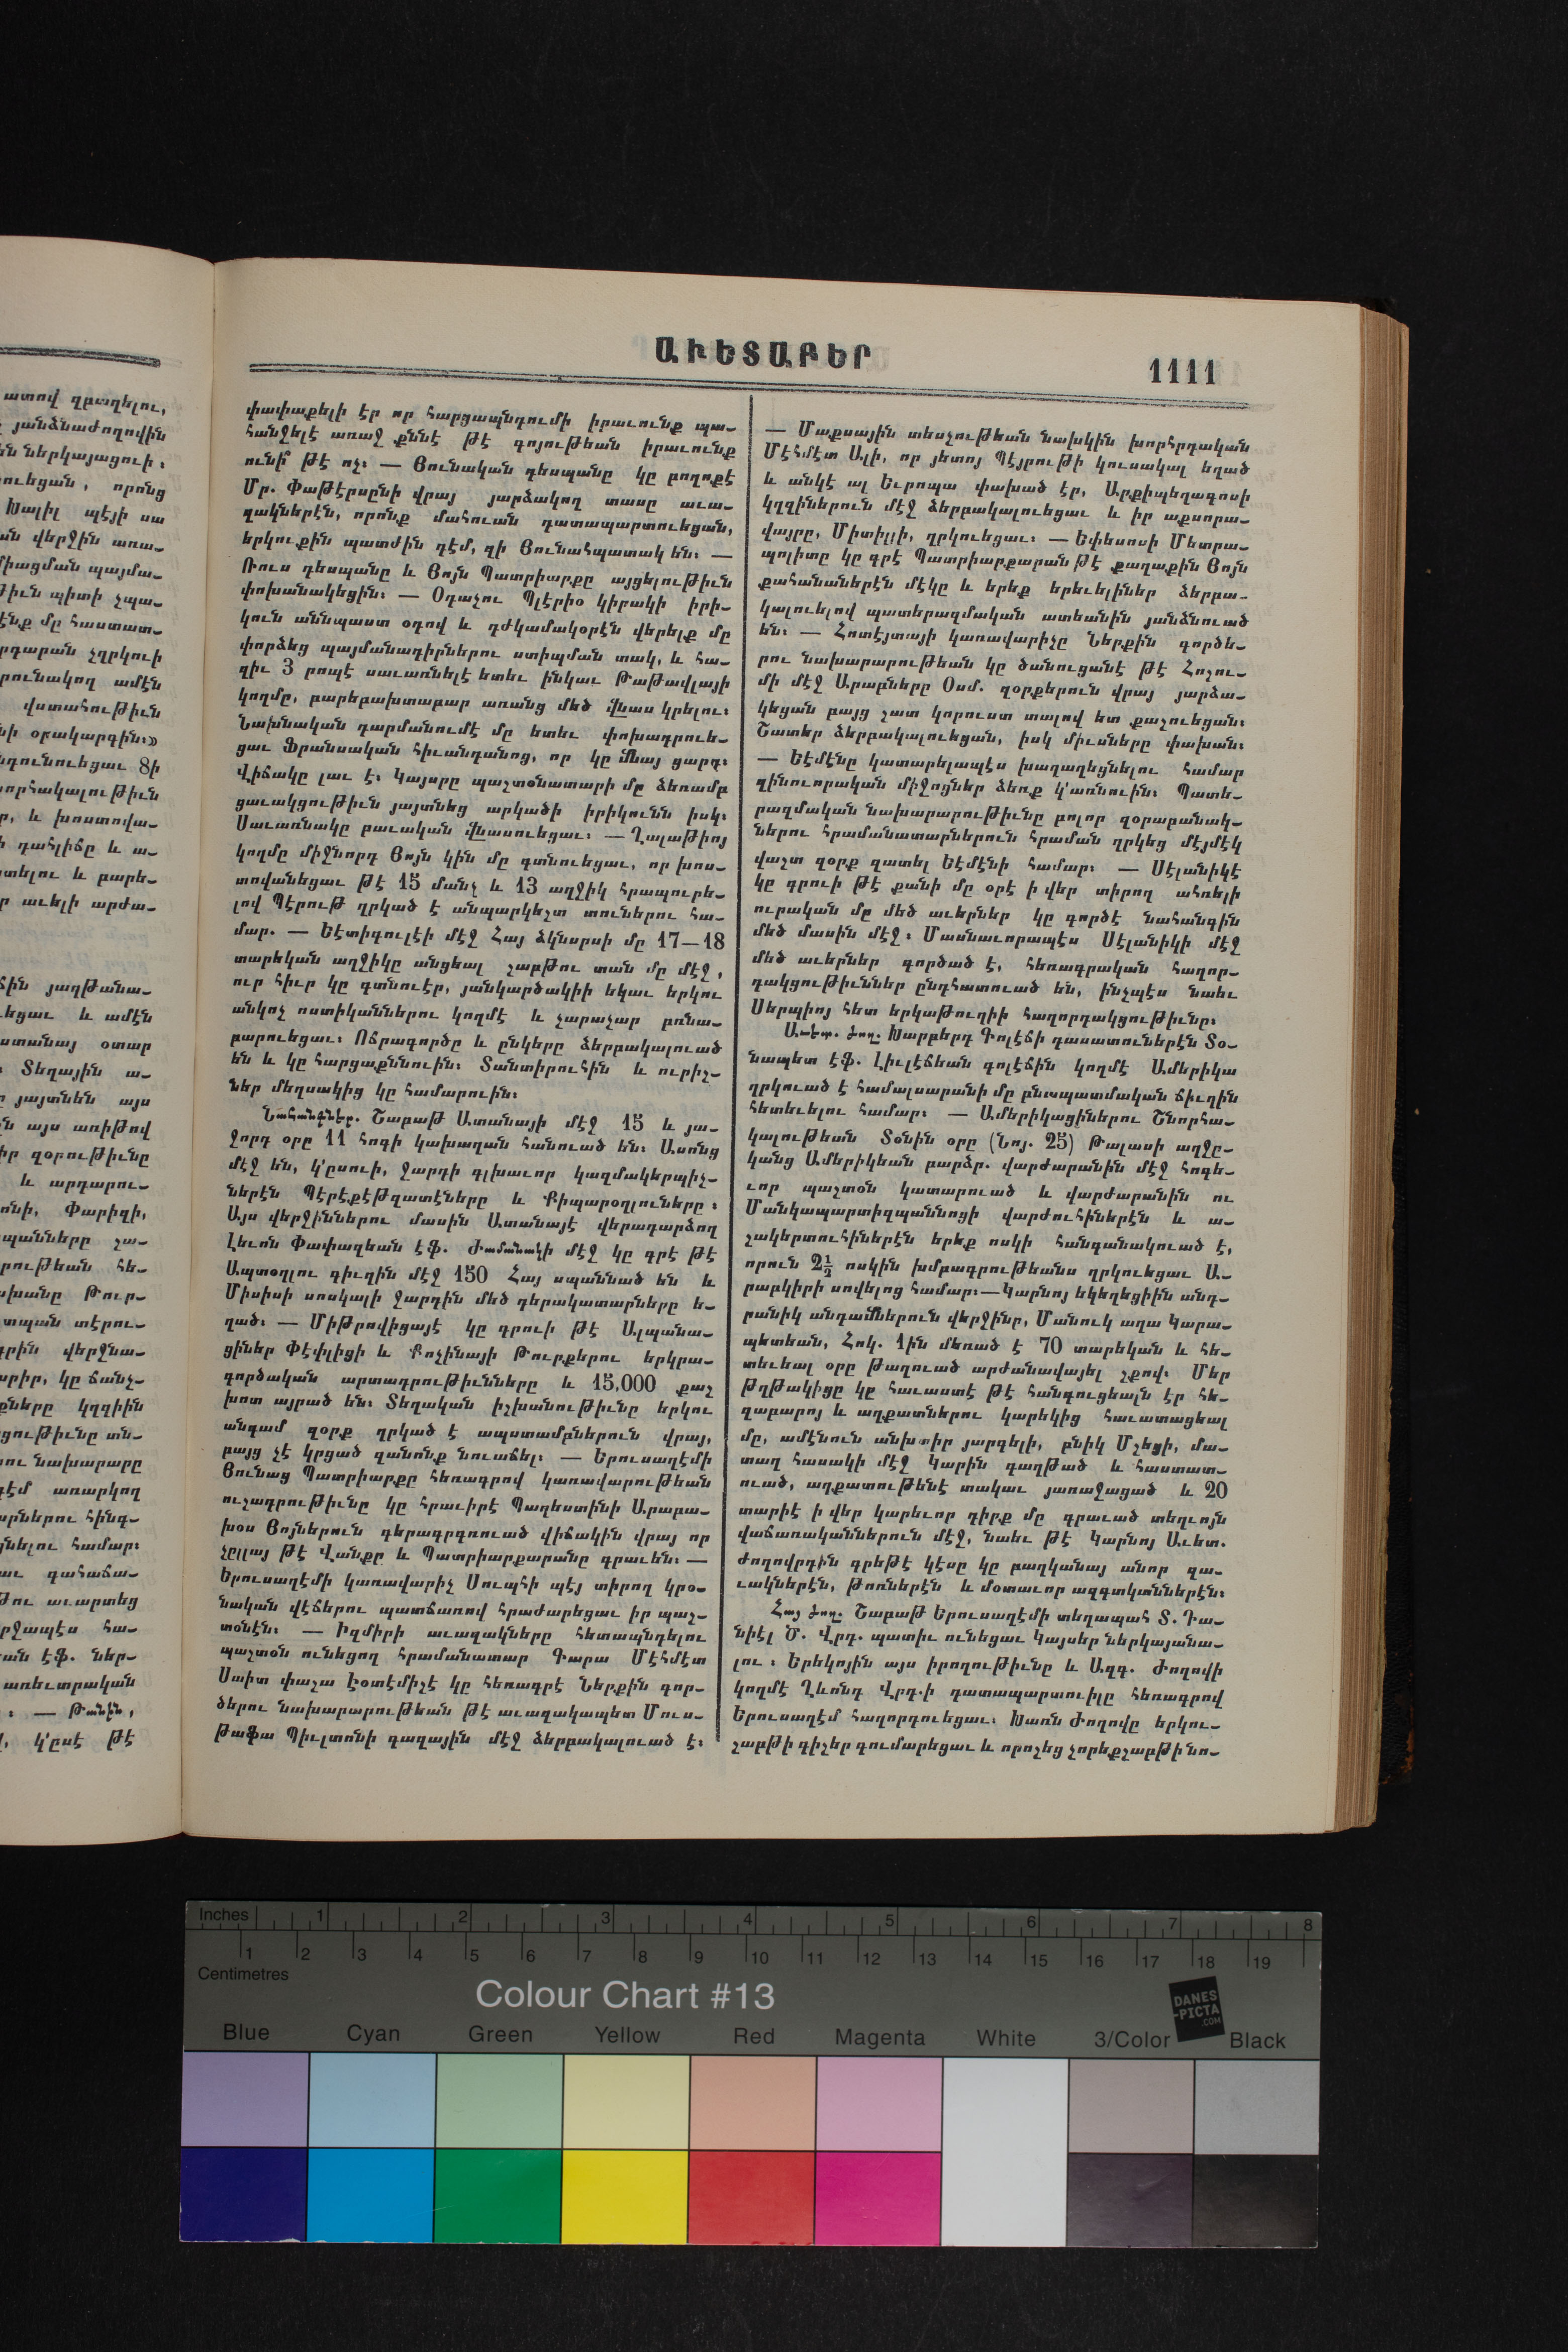 ԱՒԵՏԱԲԵՐ
1111
փափաքելի էր որ հարցապնդումի իրաւունք պա-
հանջելէ առաջ քննէ թէ գոյութեան իրաւունք
ունի՞ թէ ոչ։ — Յունական դեսպանը կը բողոքէ
Մր. Փաթէրսընի վրայ յարձակող տասը աւա-
զակներէն, որոնք մահուան դատապարտուեցան,
երկուքին պատժին դէմ, զի Յունահպատակ են։ —
Ռուս դեսպանը և Յոյն Պատրիարքը այցելութիւն
փոխանակեցին։ — Օդաչու Պլէրիօ կիրակի իրի-
կուն աննպաստ օդով և դժկամակօրէն վերելք մը
փորձեց պայմանադիրներու ստիպման տակ, և հա-
զիւ 3 րոպէ սաւառնելէ ետեւ ինկաւ Թաթավլայի
կողմը, բարեբախտաբար առանց մեծ վնաս կրելու։
Նախնական դարմանումէ մը ետեւ փոխադրուե-
ցաւ Ֆրանսական հիւանդանոց, որ կը մնայ ցարդ։
Վիճակը լաւ է։ Կայսրը պաշտօնատարի մը ձեռամբ
ցաւակցութիւն յայտնեց արկածի իրիկունն իսկ։
Սաւառնակը բաւական վնասուեցաւ։ — Ղալաթիոյ
կողմը միջնորդ Յոյն կին մը գտնուեցաւ, որ խոս-
տովանեցաւ թէ 15 մանչ և 13 աղջիկ հրապուրե-
լով Պէրութ ղրկած է անպարկեշտ տուներու հա-
մար. — Եէտիգուլէի մէջ Հայ ձկնորսի մը 17—18
տարեկան աղջիկը անցեալ շաբթու տան մը մէջ,
ուր հիւր կը գտնուէր, յանկարծակիի եկաւ երկու
անկոչ ոստիկաններու կողմէ և չարաչար բռնա-
բարուեցաւ։ Ոճրագործը և ընկերը ձերբակալուած
են և կը հարցաքննուին։ Տանտիրուհին և ուրիշ-
ներ մեղսակից կը համարուին։
Նահանգներ. Շաբաթ Ատանայի մէջ 15 և յա-
ջորդ օրը 11 հոգի կախաղան հանուած են։ Ասոնց
մէջ են, կ՚ըսուի, ջարդի գլխաւոր կազմակերպիչ-
ներէն Պէրէքէթզատէները և Քիպարօղլուները։
Այս վերջիններու մասին Ատանայէ վերադարձող
Լեւոն Փափազեան էֆ. Ժամանակի մէջ կը գրէ թէ
Ապտօղլու գիւղին մէջ 150 Հայ սպաննած են և
Միսիսի սոսկալի ջարդին մեծ դերակատարները ե-
ղած։ — Միթրովիցայէ կը գրուի թէ Ալպանա-
ցիներ Փէփլիցի և Քոչինայի Թուրքերու երկրա-
գործական արտադրութիւնները և 15,000 քաշ
խոտ այրած են։ Տեղական իշխանութիւնը երկու
անգամ զօրք ղրկած է ապստամբներուն վրայ,
բայց չէ կրցած զանոնք նուաճել։ — Երուսաղէմի
Յունաց Պատրիարքը հեռագրով կառավարութեան
ուշադրութիւնը կը հրաւիրէ Պաղեստինի Արաբա-
խօս Յոյներուն գերագրգռուած վիճակին վրայ որ
չըլլայ թէ Վանքը և Պատրիարքարանը գրաւեն։ —
Երուսաղէմի կառավարիչ Սուպհի պէյ տիրող կրօ-
նական վէճերու պատճառով հրաժարեցաւ իր պաշ-
տօնէն։ — Իզմիրի աւազակները հետապնդելու
պաշտօն ունեցող հրամանատար Գարա Մէհմէտ
Սաիտ փաշա Էօտէմիշէ կը հեռագրէ Ներքին գոր-
ծերու նախարարութեան թէ աւազակապետ Մուս-
թաֆա Պիւլտոնի գաղային մէջ ձերբակալուած է։
— Մաքսային տեսչութեան նախկին խորհրդական
Մէհմէտ Ալի, որ յետոյ Պէյրութի կուսակալ եղած
և անկէ ալ Եւրոպա փախած էր, Արքիպեղագոսի
կղզիներուն մէջ ձերբակալուեցաւ և իր աքսորա-
վայրը, Միտիլլի, ղրկուեցաւ։ — Եփեսոսի Մետրա-
պոլիտը կը գրէ Պատրիարքարան թէ քաղաքին Յոյն
քահանաներէն մէկը և երեք երեւելիներ ձերբա-
կալուելով պատերազմական ատեանին յանձնուած
են։ — Հոտէյտայի կառավարիչը Ներքին գործե-
րու նախարարութեան կը ծանուցանէ թէ Հոշու-
մի մէջ Արաբները Օսմ. զօրքերուն վրայ յարձա-
կեցան բայց շատ կորուստ տալով ետ քաշուեցան։
Շատեր ձերբակալուեցան, իսկ միւսները փախան։
— Եէմէնը կատարելապէս խաղաղեցնելու համար
զինուորական միջոցներ ձեռք կ՚առնուին։ Պատե-
րազմական նախարարութիւնը բոլոր զօրաբանակ-
ներու հրամանատարներուն հրաման ղրկեց մէյմէկ
վաշտ զօրք զատել Եէմէնի համար։ — Սէլանիկէ
կը գրուի թէ քանի մը օրէ ի վեր տիրող ահռելի
ուրական մը մեծ աւերներ կը գործէ նահանգին
մեծ մասին մէջ։ Մասնաւորապէս Սէլանիկի մէջ
մեծ աւերներ գործած է, հեռագրական հաղոր-
դակցութիւններ ընդհատուած են, ինչպէս նաեւ
Սերպիոյ հետ երկաթուղիի հաղորդակցութիւնը։
Աւետ. Ժող. Խարբերդ Գոլէճի դասատուներէն Տօ-
նապետ էֆ. Լիւլէճեան գոլէճին կողմէ Ամերիկա
ղրկուած է համալսարանի մը բնապատմական ճիւղին
հետեւելու համար։ — Ամերիկացիներու Շնորհա-
կալութեան Տօնին օրը (Նոյ. 25) Թալասի աղջը-
կանց Ամերիկեան բարձր. վարժարանին մէջ հոգե-
ւոր պաշտօն կատարուած և վարժարանին ու
Մանկապարտիզպաննոցի վարժուհիներէն և ա-
շակերտուհիներէն երեք ոսկի հանգանակուած է,
որուն 2½ ոսկին խմբագրութեանս ղրկուեցաւ Ա-
րաբկիրի սովելոց համար։—Կարնոյ եկեղեցիին անդ-
րանիկ անդամներուն վերջինը, Մանուկ աղա Կարա-
պետեան, Հոկ. 1ին մեռած է 70 տարեկան և հե-
տեւեալ օրը թաղուած արժանավայել շքով։ Մեր
թղթակիցը կը հաւաստէ թէ հանգուցեալն էր հե-
զաբարոյ և աղքատներու կարեկից հաւատացեալ
մը, ամէնուն անխտիր յարգելի, բնիկ Մշեցի, մա-
տաղ հասակի մէջ Կարին գաղթած և հաստատ-
ուած, աղքատութենէ տակաւ յառաջացած և 20
տարիէ ի վեր կարեւոր դիրք մը գրաւած տեղւոյն
վաճառականներուն մէջ, նաեւ թէ Կարնոյ Աւետ.
Ժողովրդին գրեթէ կէսը կը բաղկանայ անոր զա-
ւակներէն, թոռներէն և մօտաւոր ազգականներէն։
Հայ Ժող. Շաբաթ Երուսաղէմի տեղապահ Տ. Դա-
նիէլ Ծ. Վրդ. պատիւ ունեցաւ Կայսեր ներկայանա-
լու։ Երեկոյին այս իրողութիւնը և Ազգ. Ժողովի
կողմէ Ղևոնդ Վրդ.ի դատապարտուիլը հեռագրով
Երուսաղէմ հաղորդուեցաւ։ Խառն Ժողովը երկու-
շաբթի գիշեր գումարեցաւ և որոշեց չորեքշաբթի նո-
ատով զբաղելու,
յանձնաժողովին
են ներկայացուի։
ուեցան, որոնց
Խալիլ պէյի սա
ան վերջին առա-
միացման պայմա-
թիւն պիտի չպա-
էնք մը հաստատ-
րդարան չղրկուի
րունակող ամէն
վստահութիւն
նի օրակարգին։»
նդունուեցաւ 8ի
որհակալութիւն
ր, և խոստովա-
ի դահլիճը և ա-
տելու և բարե-
ր աւելի արժա-
ճին յաղթանա-
եցաւ և ամէն
ստանայ օտար
Տեղային ա-
յայտնեն այս
ն այս առիթով
իր զօրութիւնը
և արդարու-
ոնի, Փարիզի,
պանները շա-
րութեան հե-
խանը Թուր-
տպան տէրու-
գրին վերջնա-
արիր, կը ճանչ-
քները կղզիին
ցութիւնը ան-
ու նախարարը
դէմ առարկող
արներու հինգ-
յնելու համար։
աւ գահաճա-
թու աւարտեց
րջապէս հա-
ան էֆ. ներ-
առեւտրական
։ — Թանին,
կ՚ըսէ թէ
Inches 1 2 3 4 5 6 7 8
1 2 3 4 5 6 7 8 9 10 11 12 13 14 15 16 17 18 19
Centimetres
Colour Chart #13
DANES
-PICTA
.COM
Blue Cyan Green Yellow Red Magenta White 3/Color Black